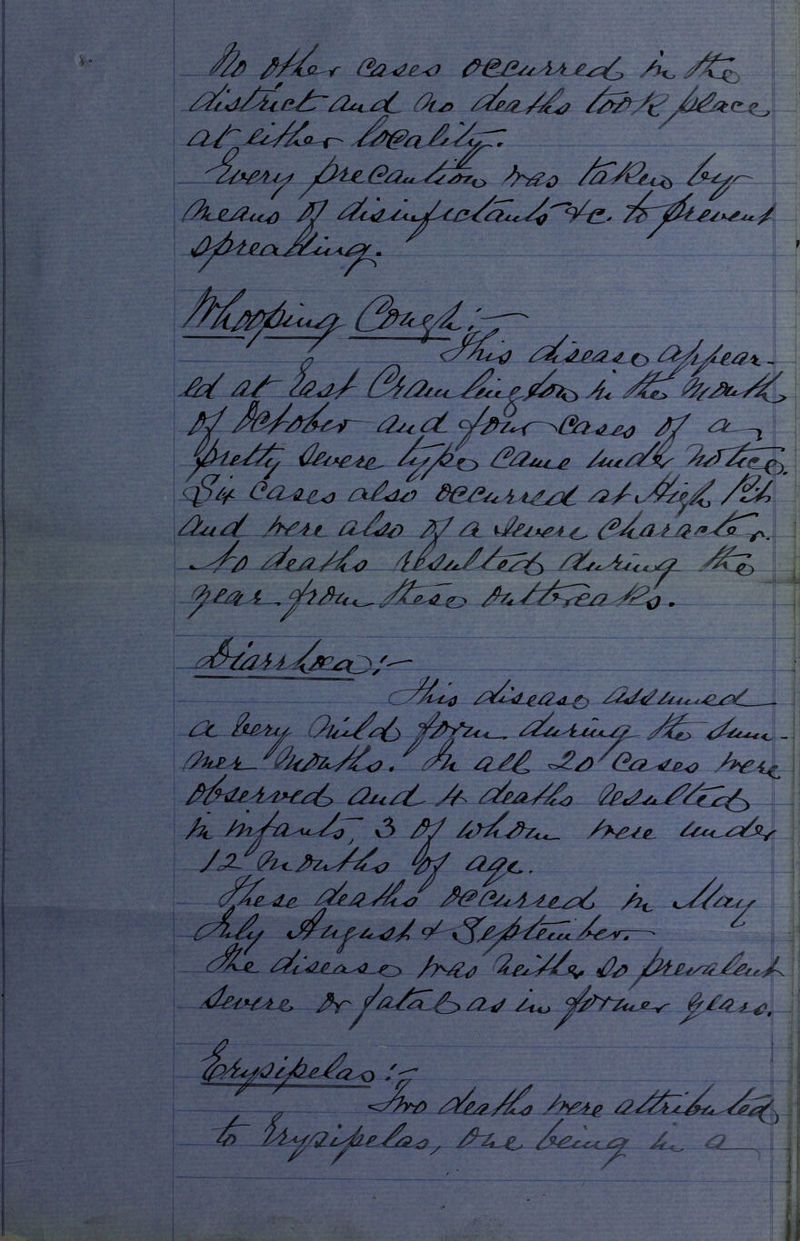 No other cases occurred in the
district and no deaths took place
at either locality.
Every precaution was taken by
means of disinfectants &c. to prevent
spreading.
Whooping Cough:-
This disease appear-
ed at East Cramlington in the month
of October and four cases of a
pretty severe type came under notice.
Six cases also occurred at High Pit
and were also of a severe character.
No deaths resulted during the
year from these outbreaks.
Diarrhoea:-
This disease assumed
a very mild form during the sum-
mer months. In all 20 cases were
observed and 4 deaths resulted
in infants, 3 of whom were under
12 months of age.
These deaths occurred in May
July August & September.
The disease was neither so prevalent
severe or fatal as in former years.
Erysipelas:-
Two deaths were attributed
to Erysipelas, one being in a